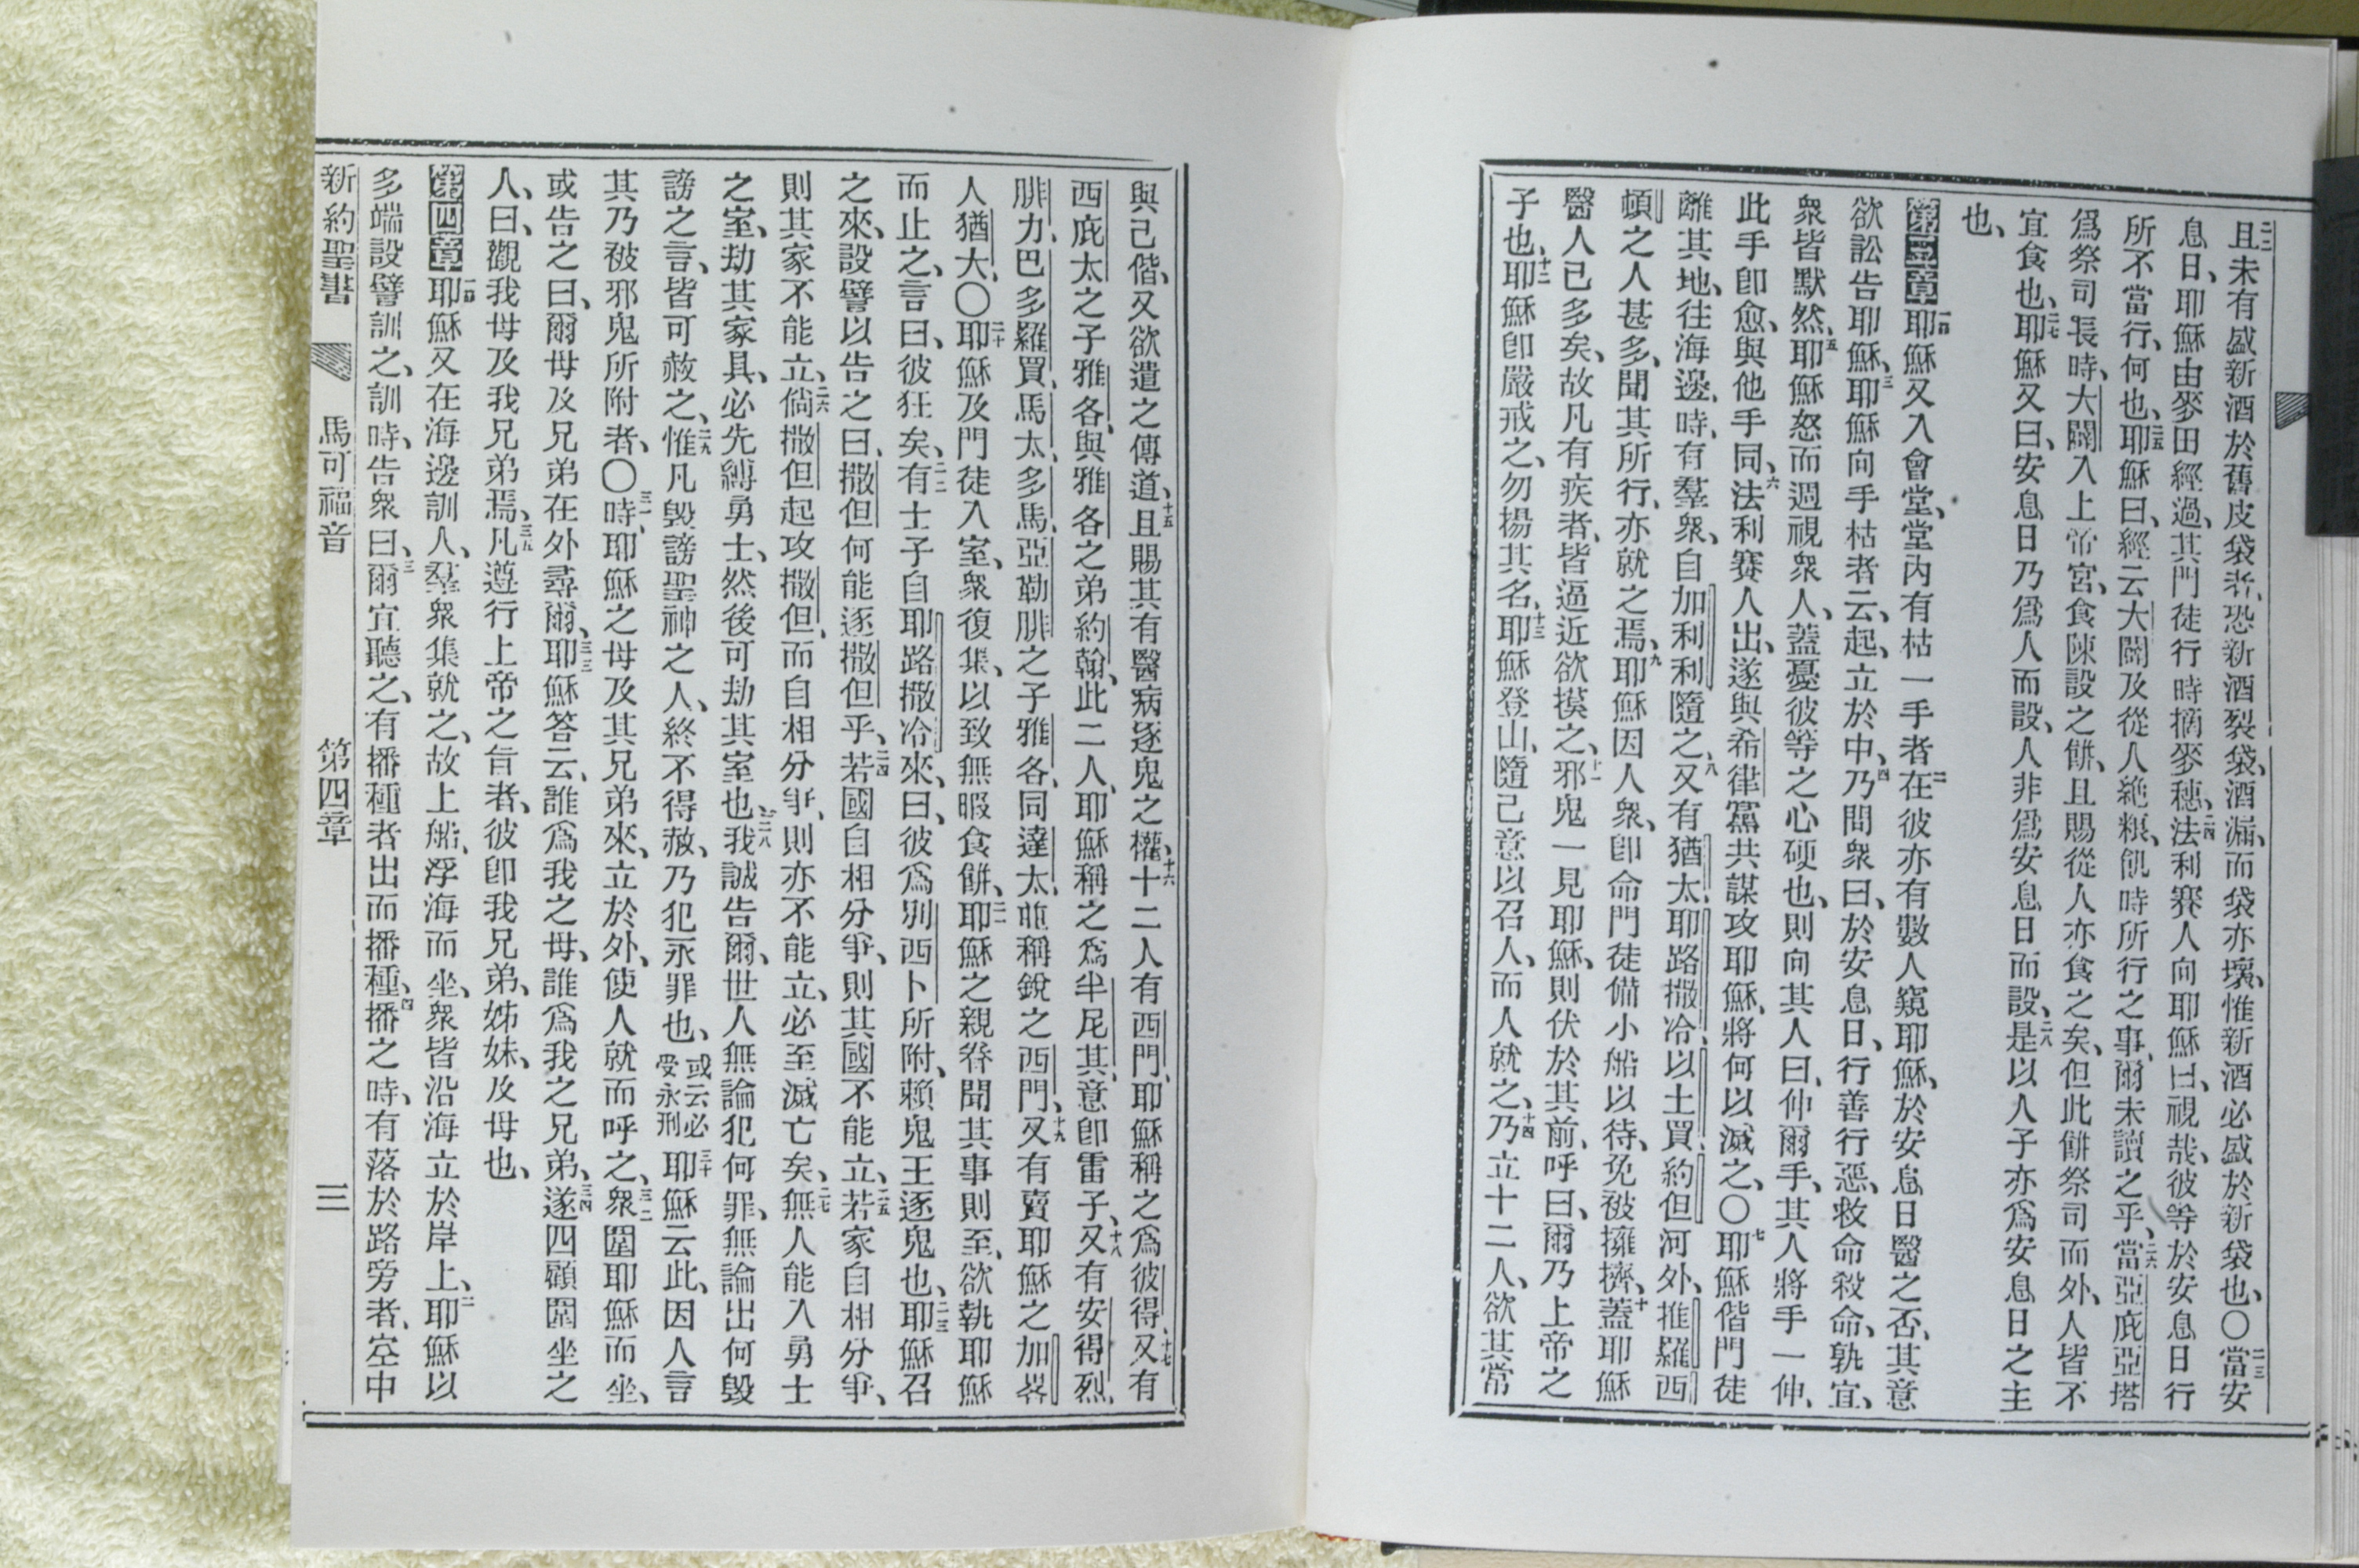 二二且未有盛新酒於舊皮袋者、恐新酒裂袋、酒漏、而袋亦壞、惟新酒必盛於新袋也、〇二三當安
息日、耶穌由麥田經過、其門徒行時摘麥穗、二四法利賽人向耶穌曰、視哉、彼等於安息日行
所不當行、何也、二五耶穌曰、經云大闢及從人絶糧、飢時所行之事、爾未讀之乎、二六當亞庇亞塔
爲祭司長時、大闢入上帝宮、食陳設之餅、且賜從人亦食之矣、但此餅祭司而外、人皆不
宜食也、二七耶穌又曰、安息日乃爲人而設、人非爲安息日而設、二八是以人子亦爲安息日之主
也、
第三章一節耶穌又入會堂、堂內有枯一手者、二在彼亦有數人窺耶穌、於安息日醫之否、其意
欲訟告耶穌、三耶穌向手枯者云、起、立於中、四乃問衆曰、於安息日、行善行惡、救命殺命、孰宜、
衆皆默然、五耶穌怒而週視衆人、蓋憂彼等之心硬也、則向其人曰、伸爾手、其人將手一伸、
此手卽愈、與他手同、六法利賽人出、遂與希律黨共謀攻耶穌、將何以滅之、〇七耶穌偕門徒
離其地、往海邊、時、有羣衆、自加利利隨之、八又有猶太、耶路撒冷、以土買、約但河外、推羅西
頓之人甚多、聞其所行、亦就之焉、九耶穌因人衆、卽命門徒備小船以待、免被擁擠、十蓋耶穌
醫人已多矣、故凡有疾者、皆逼近欲摸之、十一邪鬼一見耶穌、則伏於其前、呼曰、爾乃上帝之
子也、十二耶穌卽嚴戒之、勿揚其名、十三耶穌登山、隨己意以召人、而人就之、十四乃立十二人、欲其常
與己偕、又欲遣之傳道、十五且賜其有醫病逐鬼之權、十六十二人有西門、耶穌稱之爲彼得、十七又有
西庇太之子雅各、與雅各之弟約翰、此二人、耶穌稱之爲半尼其、意卽雷子、十八又有安得烈、
腓力、巴多羅買、馬太、多馬、亞勒腓之子雅各、同達太、並稱銳之西門、十九又有賣耶穌之加畧
人猶大、〇二十耶穌及門徒入室、衆復集、以致無暇食餅、二一耶穌之親眷聞其事則至、欲執耶穌
而止之、言曰、彼狂矣、二二有士子自耶路撒冷來、曰、彼爲別西卜所附、賴鬼王逐鬼也、二三耶穌召
之來、設譬以告之曰、撒但何能逐撒但乎、二四若國自相分爭、則其國不能立、二五若家自相分爭、
則其家不能立、二六倘撒但起攻撒但、而自相分爭、則亦不能立、必至滅亡矣、二七無人能入勇士
之室、劫其家具、必先縛勇士、然後可劫其室也、二八我誠告爾、世人無論犯何罪、無論出何毀
謗之言、皆可赦之、二九惟凡毀謗聖神之人、終不得赦、乃犯永罪也、或云必受永刑三十耶穌云此、因人言
其乃被邪鬼所附者、〇三一時、耶穌之母及其兄弟來、立於外、使人就而呼之、三二衆圍耶穌而坐、
或告之曰、爾母及兄弟在外尋爾、三三耶穌答云、誰爲我之母、誰爲我之兄弟、三四遂四顧圍坐之
人、曰、觀我母及我兄弟焉、三五凡遵行上帝之旨者、彼卽我兄弟、姊妹、及母也、
第四章一節耶穌又在海邊訓人、羣衆集就之、故上船、浮海而坐、衆皆沿海立於岸上、二耶穌以
多端設譬訓之、訓時、告衆曰、三爾宜聽之、有播種者出而播種、四播之時、有落於路旁者、空中
新約聖書 馬可福音 第四章 三